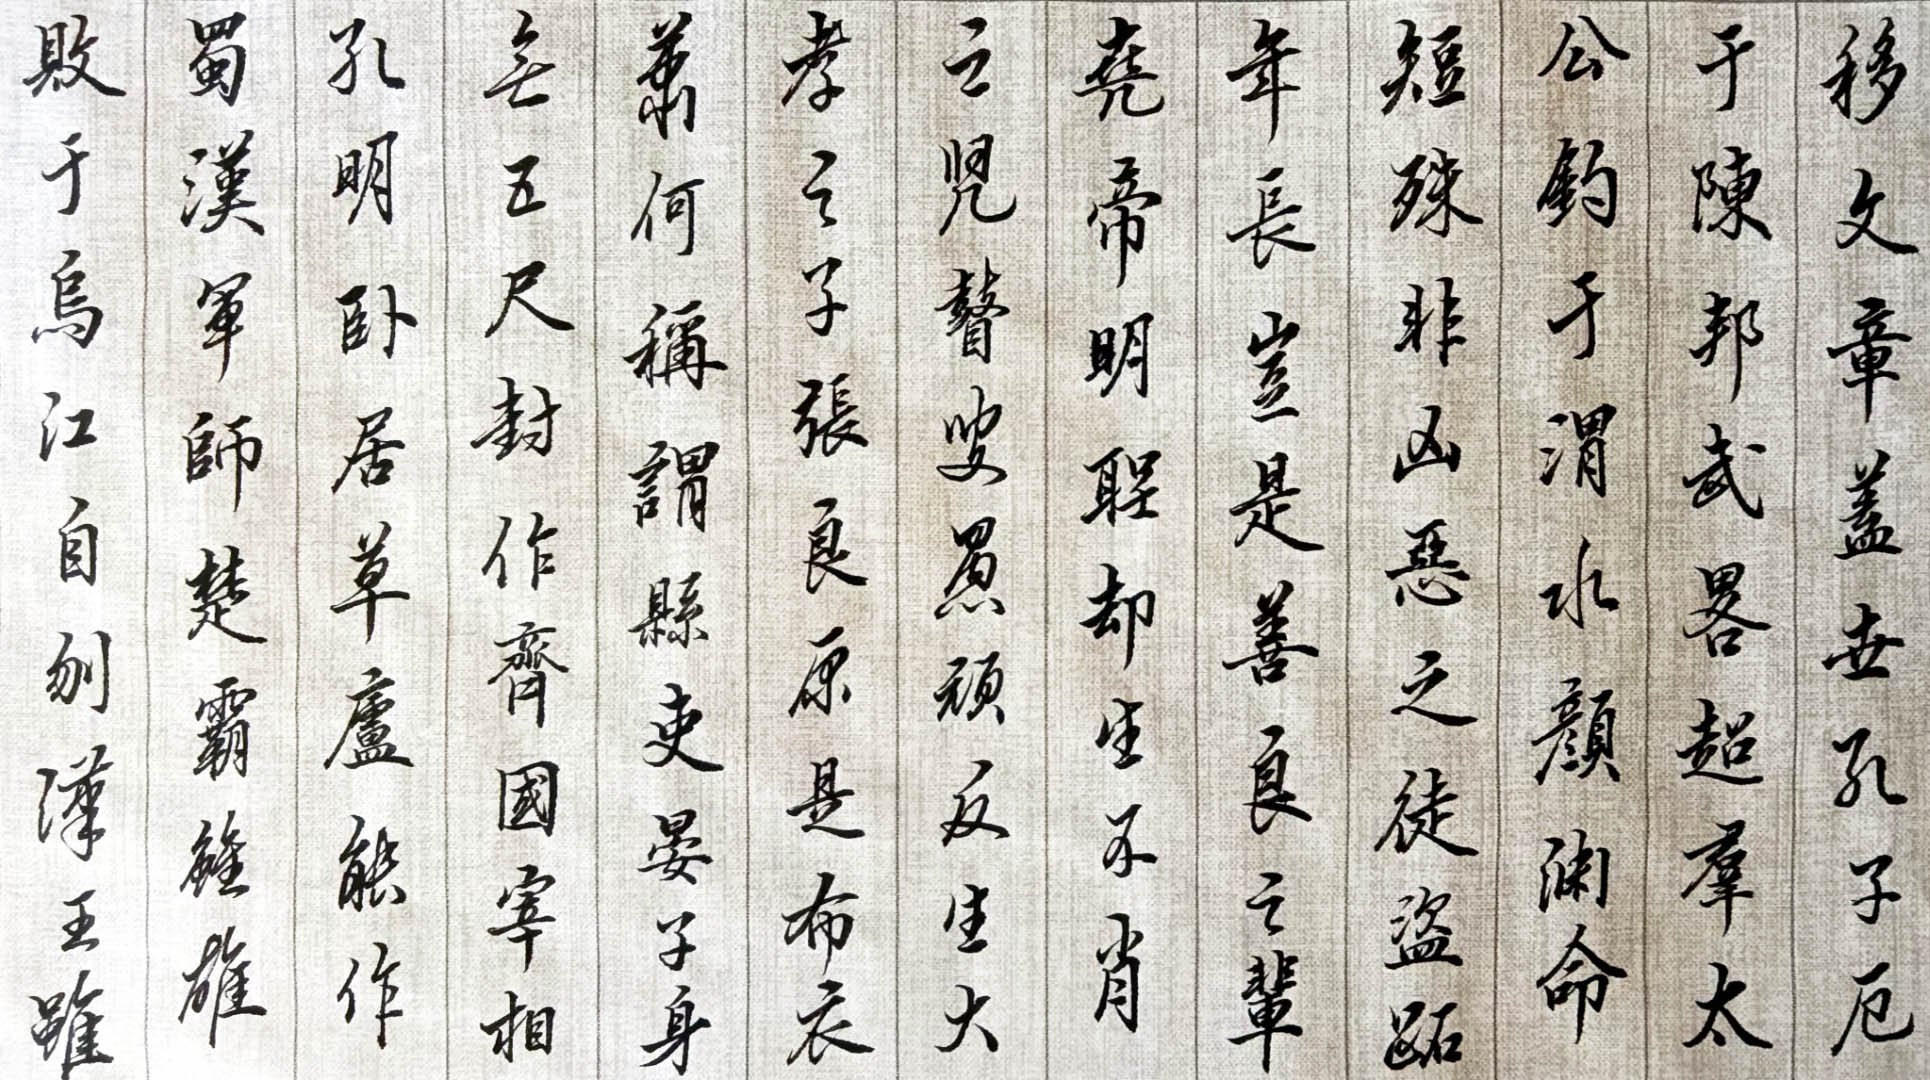 移文章盖世孔子厄
于陳邦武畧超羣太
公釣于渭水顔渊命
短殊非凶惡之徒盜跖
年長豈是善良之輩
堯帝明聖却生不肖
之児瞽叟愚頑反生大
孝之子張良原是布衣
蕭何稱謂縣吏晏子身
無五尺封作齊國宰相
孔明卧居草廬能作
蜀漢軍師楚霸雖雄
敗于烏江自刎漢王雖